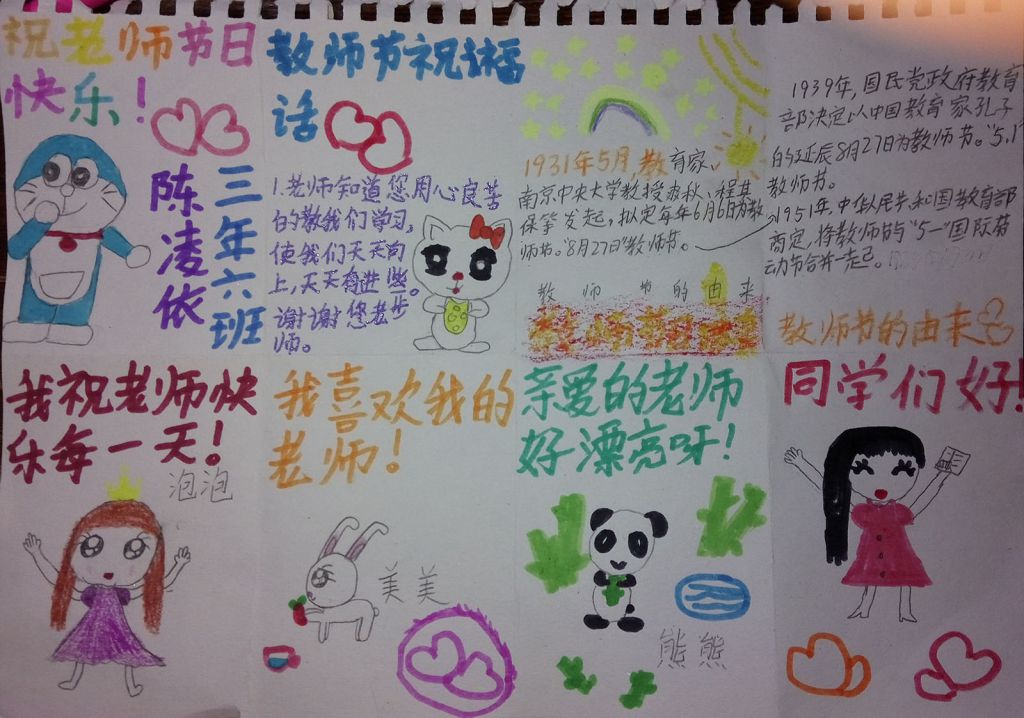 祝老师节日
快乐!
三年六班
陈凌依
教师节祝福
话
1.老师知道您用心良苦
的教我们学习,
使我们天天向
上,天天有进步。
谢谢您老
师。
1931年5月,教育家、
南京中央大学教授
保挚发起,拟定每年6月6日为教
师节。"8月27日"教师节。
教师节的由来
1939年,国民党政府教育
部决定以中国教育家孔子
的诞辰8月27日为教师节。"5.1"
教师节。
1951年,中华人民共和国教育部
商定,将教师节与"5一"国际劳
动节合并一起。
教师节的由来
我祝老师快
乐每一天!
泡泡
我喜欢我的
老师!
美美
亲爱的老师
好漂亮呀!
熊熊
同学们好!